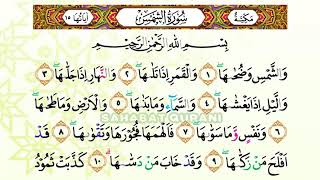 مكية سورة الشمس اياتها ١٥
بِسْمِ اللهِ الرَّحْمٰنِ الرَّحِيْمِ
وَالشَّمْسِ وَضُحٰىهَا ۝١ وَالْقَمَرِ اِذَا تَلٰىهَا ۝٢ وَالنَّهَارِ اِذَا جَلّٰىهَا ۝٣
وَالَّيْلِ اِذَا يَغْشٰىهَا ۝٤ وَالسَّمَاۤءِ وَمَا بَنٰىهَا ۝٥ وَالْاَرْضِ وَمَا طَحٰىهَا ۝٦
وَنَفْسٍ وَّمَا سَوّٰىهَا ۝٧ فَاَلْهَمَهَا فُجُوْرَهَا وَتَقْوٰىهَا ۝٨ قَدْ
اَفْلَحَ مَنْ زَكّٰىهَا ۝٩ وَقَدْ خَابَ مَنْ دَسّٰىهَا ۝١٠ كَذَّبَتْ ثَمُوْدُ
SAHABAT QURANI